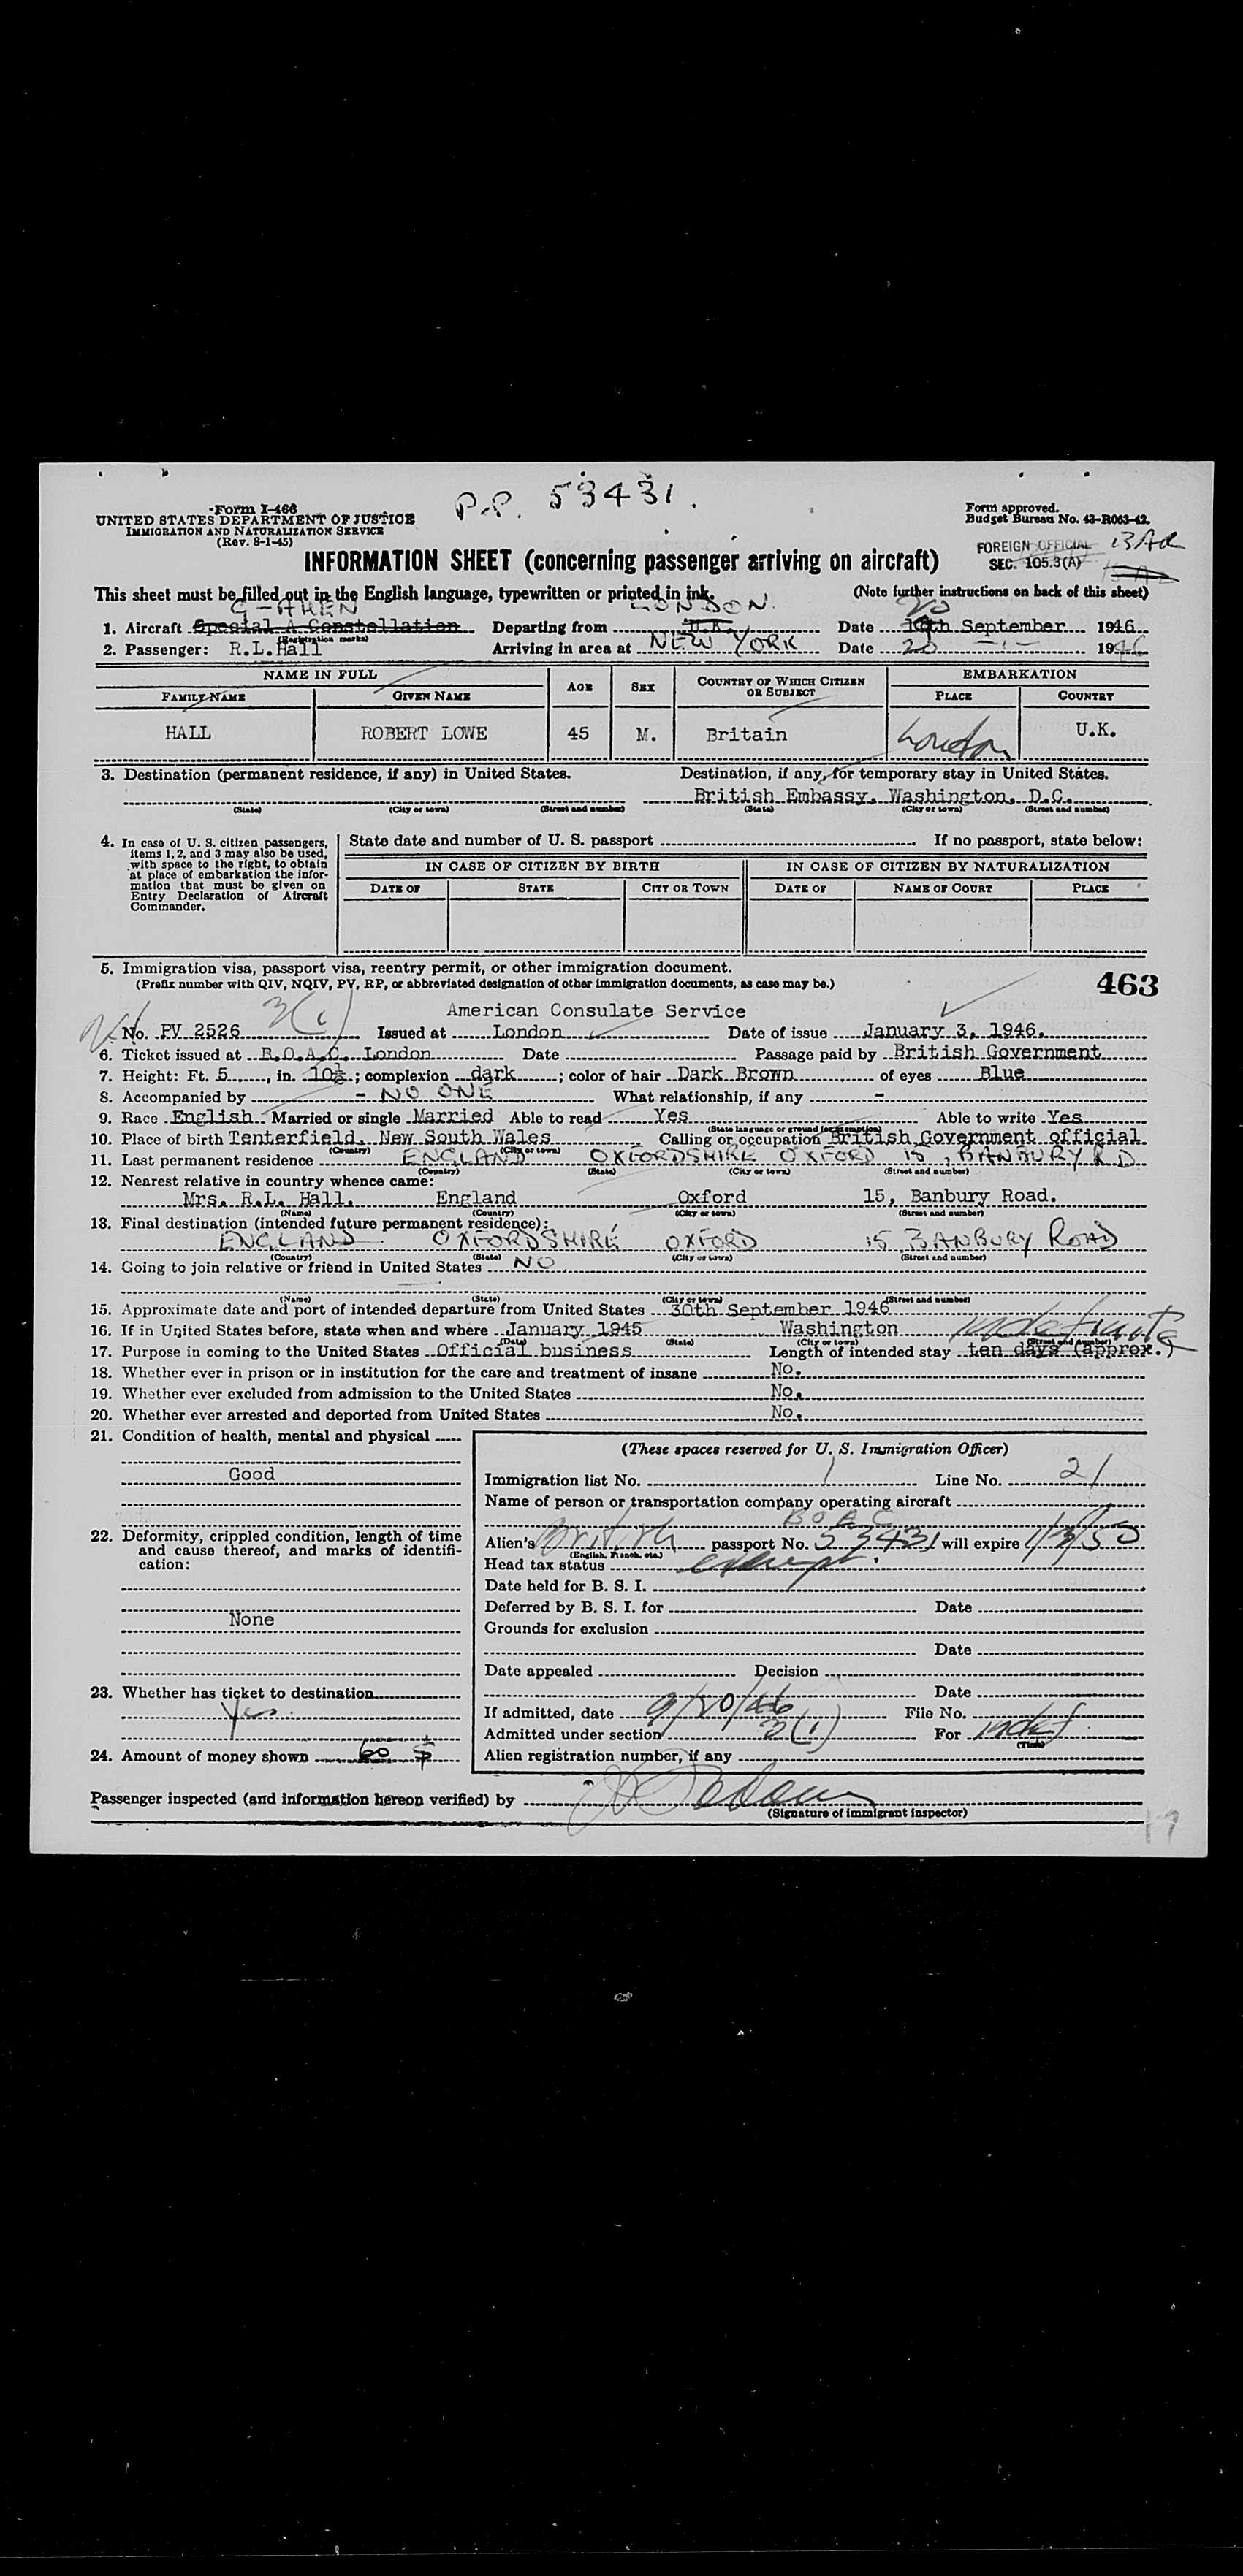 P.P. 53431.
Form I-466
UNITED STATES DEPARTMENT OF JUSTICE
IMMIGRATION AND NATURALIZATION SERVICE
(Rev. 8-1-45)
Form approved.
Budget Bureau No. 43-R063-42.
FOREIGN OFFICIAL
SEC. 105.3(A)
INFORMATION SHEET (concerning passenger arriving on aircraft)
This sheet must be filled out in the English language, typewritten or printed in ink. (Note further instructions on back of this sheet)
G-AHEN LONDON 20
1. Aircraft Special A Constellation Departing from U.K. Date 19th September 1946
(Registration marks)
2. Passenger: R.L.Hall Arriving in area at NEW YORK Date 20 -"- 1946
NAME IN FULL AGE SEX COUNTRY OF WHICH CITIZEN OR SUBJECT EMBARKATION
FAMILY NAME GIVEN NAME PLACE COUNTRY
HALL ROBERT LOWE 45 M. Britain London U.K.
3. Destination (permanent residence, if any) in United States. Destination, if any, for temporary stay in United States.
British Embassy, Washington, D.C.
(State) (City or town) (Street and number) (State) (City or town) (Street and number)
4. In case of U. S. citizen passengers, items 1, 2, and 3 may also be used, with space to the right, to obtain at place of embarkation the information that must be given on Entry Declaration of Aircraft Commander.
State date and number of U. S. passport If no passport, state below:
IN CASE OF CITIZEN BY BIRTH IN CASE OF CITIZEN BY NATURALIZATION
DATE OF STATE CITY OR TOWN DATE OF NAME OF COURT PLACE
5. Immigration visa, passport visa, reentry permit, or other immigration document.
(Prefix number with QIV, NQIV, PV, RP, or abbreviated designation of other immigration documents, as case may be.)
463
3(1) American Consulate Service
No. PV 2526 Issued at London Date of issue January 3, 1946.
6. Ticket issued at B.O.A.C. London Date Passage paid by British Government
7. Height: Ft. 5, in. 10½; complexion dark; color of hair Dark Brown of eyes Blue
8. Accompanied by - NO ONE What relationship, if any -
9. Race English Married or single Married Able to read Yes Able to write Yes
(State language or ground for exemption)
10. Place of birth Tenterfield, New South Wales Calling or occupation British Government official
(Country) (City or town)
11. Last permanent residence ENGLAND OXFORDSHIRE OXFORD 15, BANBURY RD
(Country) (State) (City or town) (Street and number)
12. Nearest relative in country whence came:
Mrs. R.L. Hall. England Oxford 15, Banbury Road.
(Name) (Country) (City or town) (Street and number)
13. Final destination (intended future permanent residence):
ENGLAND OXFORDSHIRE OXFORD 15 BANBURY ROAD
(Country) (State) (City or town) (Street and number)
14. Going to join relative or friend in United States NO
(Name) (State) (City or town) (Street and number)
15. Approximate date and port of intended departure from United States 30th September 1946
16. If in United States before, state when and where January 1945 Washington indefinite
(Date) (State) (City or town) (Street and number)
17. Purpose in coming to the United States Official business Length of intended stay ten days (approx.)
18. Whether ever in prison or in institution for the care and treatment of insane No.
19. Whether ever excluded from admission to the United States No.
20. Whether ever arrested and deported from United States No.
21. Condition of health, mental and physical
Good
22. Deformity, crippled condition, length of time and cause thereof, and marks of identification:
None
23. Whether has ticket to destination
Yes
24. Amount of money shown 60 $
(These spaces reserved for U. S. Immigration Officer)
Immigration list No. 1 Line No. 21
Name of person or transportation company operating aircraft
BOAC
Alien's British passport No. 53431 will expire 1/3/50
(English, French, etc.)
Head tax status exempt.
Date held for B. S. I.
Deferred by B. S. I. for Date
Grounds for exclusion
Date
Date appealed Decision
Date
If admitted, date 9/20/46 File No.
Admitted under section 3(1) For indef
(Time)
Alien registration number, if any
Passenger inspected (and information hereon verified) by
(Signature of immigrant inspector)